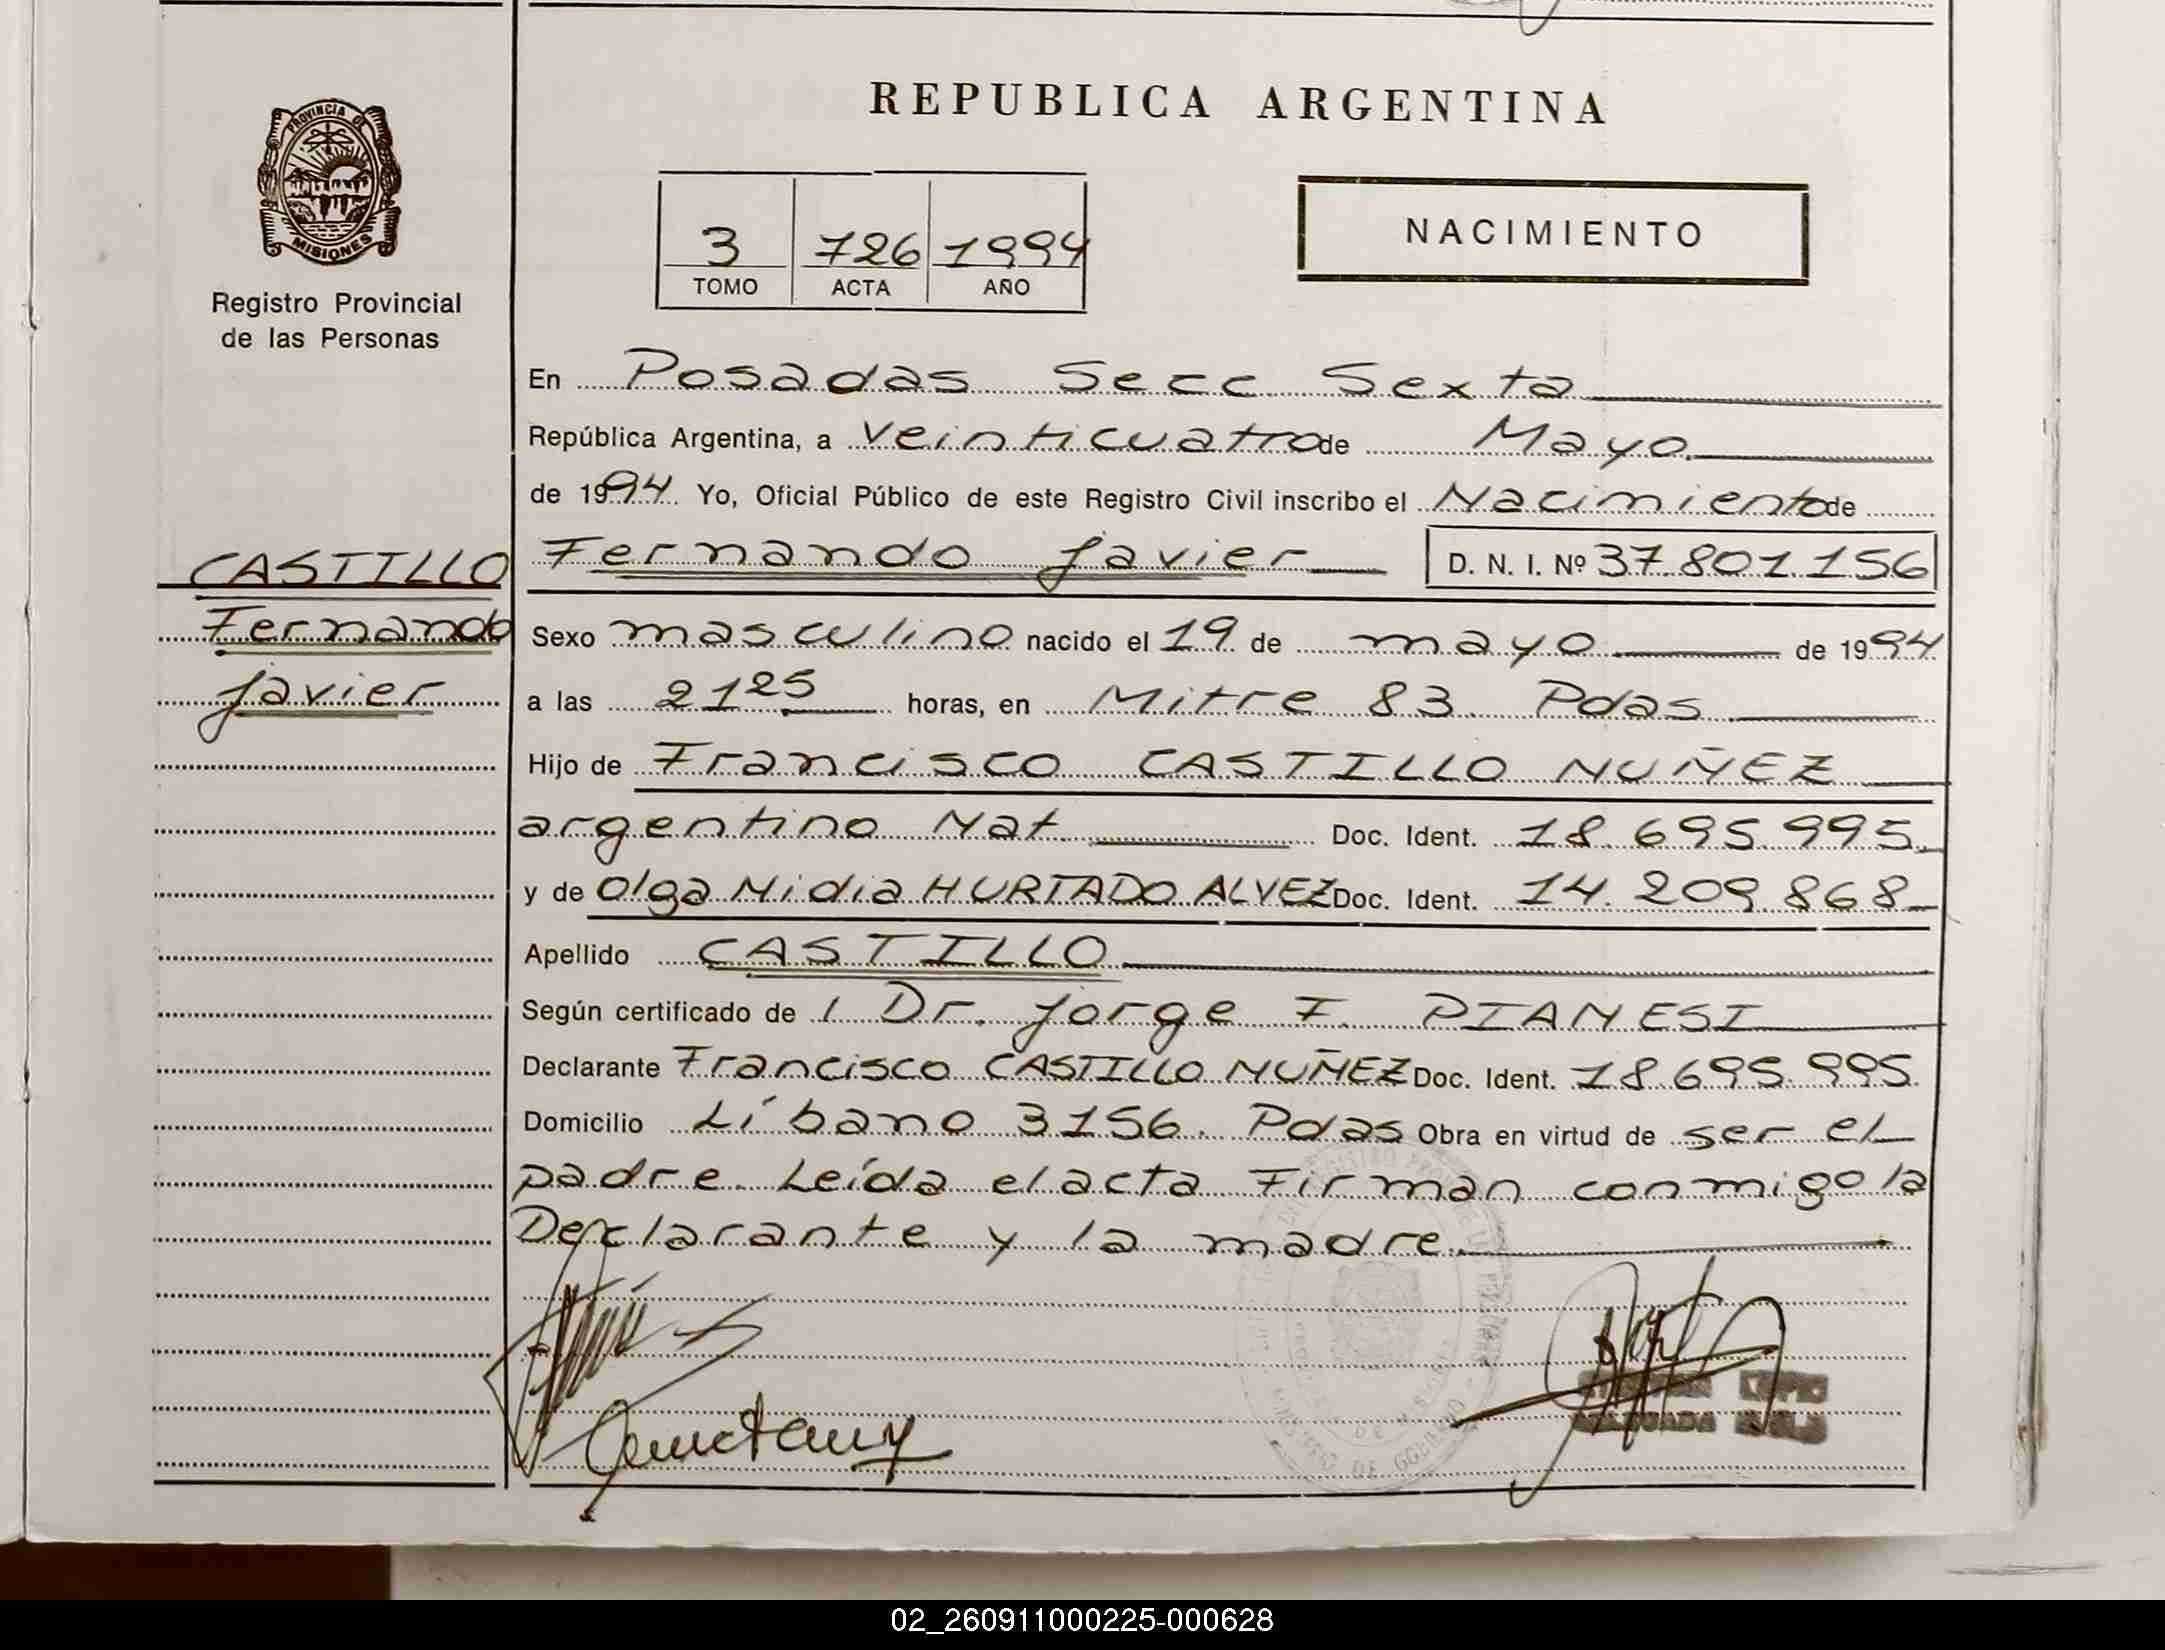 REPUBLICA ARGENTINA
PROVINCIA DE
MISIONES
Registro Provincial
de las Personas
3 726 1994
TOMO ACTA AÑO
NACIMIENTO
En Posadas Secc Sexta
República Argentina, a Veinticuatro de Mayo
de 1994 Yo, Oficial Público de este Registro Civil inscribo el Nacimiento de
CASTILLO
Fernando
Javier
Fernando Javier D. N. I. Nº 37.801.156
Sexo masculino nacido el 19 de mayo de 1994
a las 21 25 horas, en Mitre 83. Pdas
Hijo de Francisco CASTILLO NUÑEZ
argentino Nat Doc. Ident. 18.695.995
y de Olga Nidia HURTADO ALVEZ Doc. Ident. 14.209.868
Apellido CASTILLO
Según certificado de 1 Dr. Jorge F. PIANESI
Declarante Francisco CASTILLO NUÑEZ Doc. Ident. 18.695.995
Domicilio Líbano 3156. Pdas Obra en virtud de ser el
padre. Leída el acta Firman conmigo la
Declarante y la madre.
02_260911000225-000628